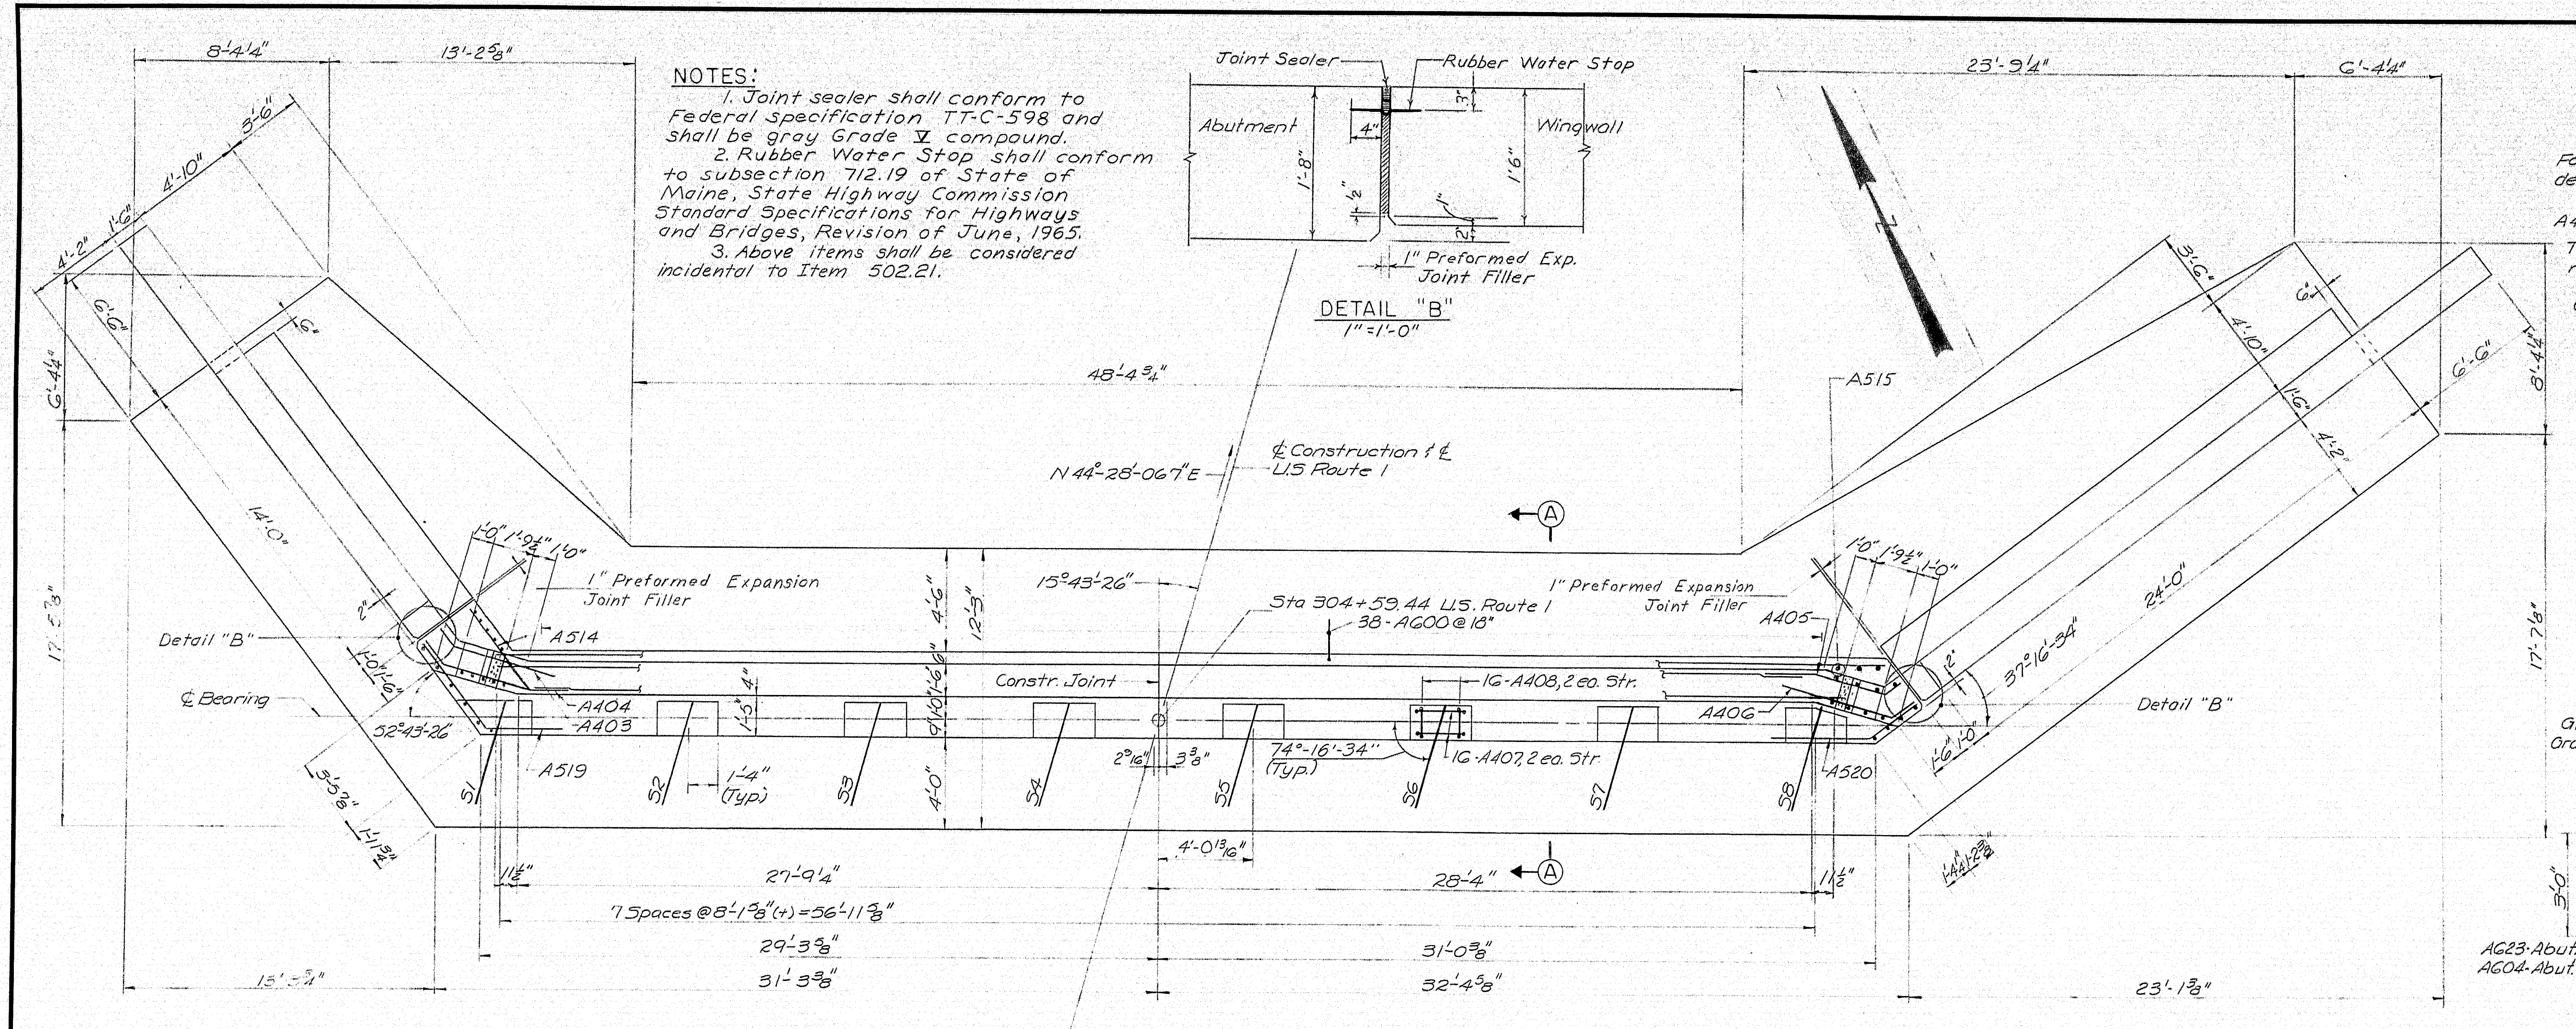 8'-4 1/4"
13'-2 5/8"
NOTES:
1. Joint sealer shall conform to
Federal specification TT-C-598 and
shall be gray Grade V compound.
2. Rubber Water Stop shall conform
to subsection 712.19 of State of
Maine, State Highway Commission
Standard Specifications for Highways
and Bridges, Revision of June, 1965.
3. Above items shall be considered
incidental to Item 502.21.
Joint Sealer
Rubber Water Stop
Abutment
Wingwall
3"
4"
1'-8"
1'6"
1/2"
1"
2"
1" Preformed Exp.
Joint Filler
DETAIL "B"
1"=1'-0"
23'-9 1/4"
6'-4 1/4"
3'-6"
4'-10"
1'-6"
4'-2"
6'-6"
6"
6'-4 1/4"
14'-0"
17'-5 7/8"
48'-4 3/4"
N 44°-28'-06.7" E
℄ Construction & ℄
U.S Route 1
A
A515
Z
3'-6"
6"
4'-10"
1'-6"
4'-2"
6'-6"
8'-4 1/4"
24'-0"
17'-7 1/8"
37°-16'-34"
1'-0"
1'-9 1/2"
1'-0"
1" Preformed Expansion
Joint Filler
2"
Detail "B"
A514
1'-0"
1'-6"
℄ Bearing
52°43'-26"
A404
A403
A519
3'-5 7/8"
1'-11 3/4"
4'-6"
12'-3"
1'-6"
1'-0"
9"
4'-0"
4"
1'-5"
15°43'-26"
Sta 304+59.44 U.S. Route 1
38-A600@18"
Constr. Joint
16-A408, 2 ea. Str.
16-A407, 2 ea. Str.
74°-16'-34"
(Typ.)
3 3/8"
1'-4"
(Typ.)
S1
S2
S3
S4
S5
S6
S7
S8
1" Preformed Expansion
Joint Filler
1'-0"
1'-9 1/2"
1'-0"
A405
A406
A520
2"
Detail "B"
1'-6"
1'-0"
A
4'-0 13/16"
11 1/2"
27'-9 1/4"
28'-4"
11 1/2"
7 Spaces @ 8'-1 5/8" (+) = 56'-11 5/8"
29'-3 5/8"
31'-0 3/8"
31'-3 3/8"
32'-4 5/8"
23'-1 3/8"
3'-0"
A623-Abut.
A604-Abut.